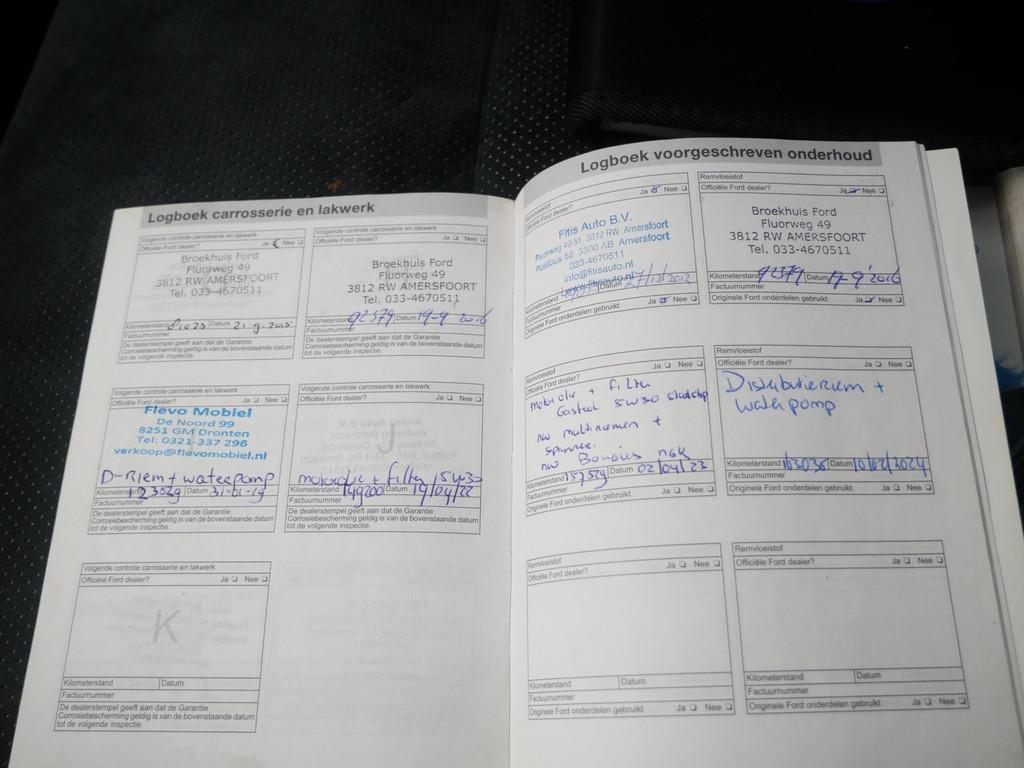 Logboek carrosserie en lakwerk
Volgende controle carrosserie en lakwerk
Officiële Ford dealer? Ja Nee
Broekhuis Ford
Fluorweg 49
3812 RW AMERSFOORT
Tel. 033-4670511
Kilometerstand Datum
Factuurnummer
De dealerstempel geeft aan dat de Garantie
Corrosiebescherming geldig is van de bovenstaande datum
tot de volgende inspectie.
Volgende controle carrosserie en lakwerk
Officiële Ford dealer? Ja Nee
Broekhuis Ford
Fluorweg 49
3812 RW AMERSFOORT
Tel. 033-4670511
Kilometerstand 92579 Datum 19-9 2016
Factuurnummer
De dealerstempel geeft aan dat de Garantie
Corrosiebescherming geldig is van de bovenstaande datum
tot de volgende inspectie.
Volgende controle carrosserie en lakwerk
Officiële Ford dealer? Ja Nee
Flevo Mobiel
De Noord 99
8251 GM Dronten
Tel: 0321-337 296
verkoop@flevomobiel.nl
D-Riem + waterpomp
Kilometerstand Datum
Factuurnummer
De dealerstempel geeft aan dat de Garantie
Corrosiebescherming geldig is van de bovenstaande datum
tot de volgende inspectie.
Volgende controle carrosserie en lakwerk
Officiële Ford dealer? Ja Nee
motorolie + filter 5w30
Kilometerstand 149200 Datum 19/04/22
Factuurnummer
De dealerstempel geeft aan dat de Garantie
Corrosiebescherming geldig is van de bovenstaande datum
tot de volgende inspectie.
Volgende controle carrosserie en lakwerk
Officiële Ford dealer? Ja Nee
K
Kilometerstand Datum
Factuurnummer
De dealerstempel geeft aan dat de Garantie
Corrosiebescherming geldig is van de bovenstaande datum
tot de volgende inspectie.
Logboek voorgeschreven onderhoud
Remvloeistof
Officiële Ford dealer? Ja Nee
Fitis Auto B.V.
Fluorweg 49-51, 3812 RW Amersfoort
Postbus 52, 3800 AB Amersfoort
033-4670511
info@fitisauto.nl
www.fitisauto.nl
Kilometerstand Datum
Factuurnummer
Originele Ford onderdelen gebruikt Ja Nee
Remvloeistof
Officiële Ford dealer? Ja Nee
Broekhuis Ford
Fluorweg 49
3812 RW AMERSFOORT
Tel. 033-4670511
Kilometerstand 92579 Datum 19-9 2016
Factuurnummer
Originele Ford onderdelen gebruikt Ja Nee
Remvloeistof
Officiële Ford dealer? Ja Nee
motorolie + filter
Castrol 5w30
nw multiriemen +
spanner
nw Bougies ngk
Kilometerstand 157529 Datum 02/04/23
Factuurnummer
Originele Ford onderdelen gebruikt Ja Nee
Remvloeistof
Officiële Ford dealer? Ja Nee
Distributieriem +
waterpomp
Kilometerstand 163038 Datum 10/02/2024
Factuurnummer
Originele Ford onderdelen gebruikt Ja Nee
Remvloeistof
Officiële Ford dealer? Ja Nee
Kilometerstand Datum
Factuurnummer
Originele Ford onderdelen gebruikt Ja Nee
Remvloeistof
Officiële Ford dealer? Ja Nee
Kilometerstand Datum
Factuurnummer
Originele Ford onderdelen gebruikt Ja Nee